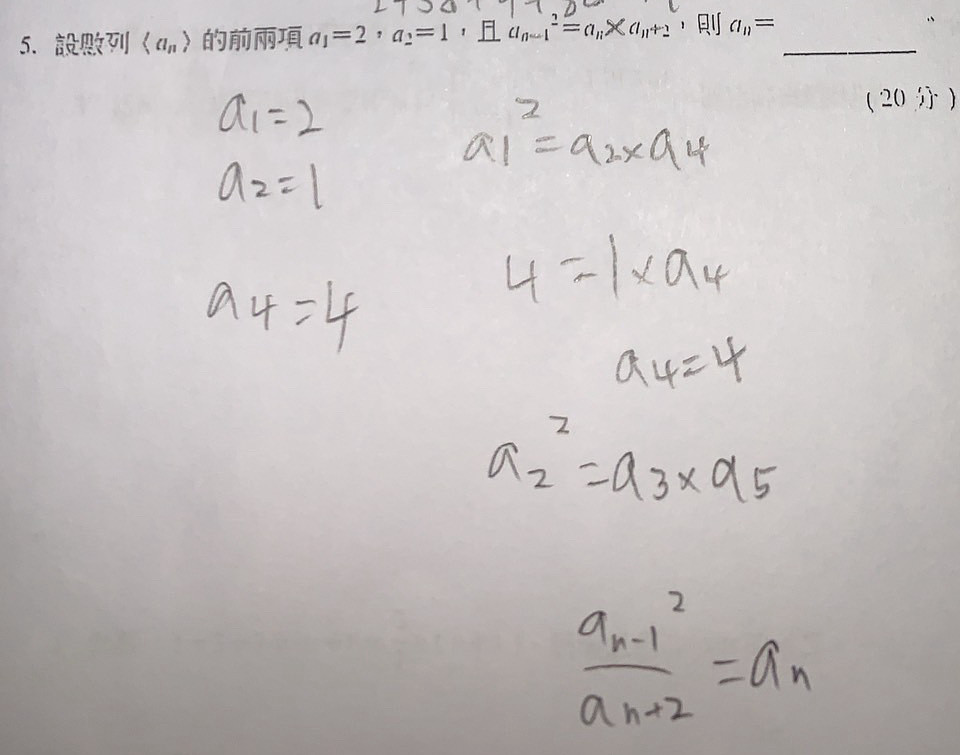 5. 設數列〈aₙ〉的前兩項 a₁=2，a₂=1，且 aₙ₋₁²=aₙ×aₙ₊₂，則 aₙ=
(20 分)
a₁=2
a₁²=a₂×a₄
a₂=1
4=1×a₄
a₄=4
a₄=4
a₂²=a₃×a₅
aₙ₋₁²
/aₙ₊₂ =aₙ